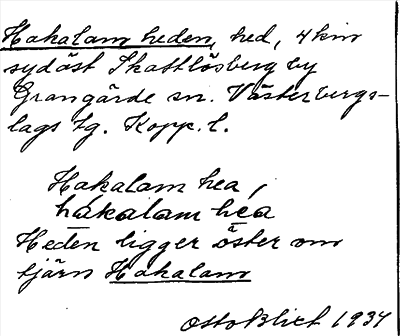 Hakalam heden, hed, 4 km
sydöst Skattlösberg by
Grangärde sn. Västerbergs-
lags tg. Kopp. l.
Hakalam hea,
hakalam hea
Heden ligger öster om
tjärn Hakalam
Otto Blixt 1934